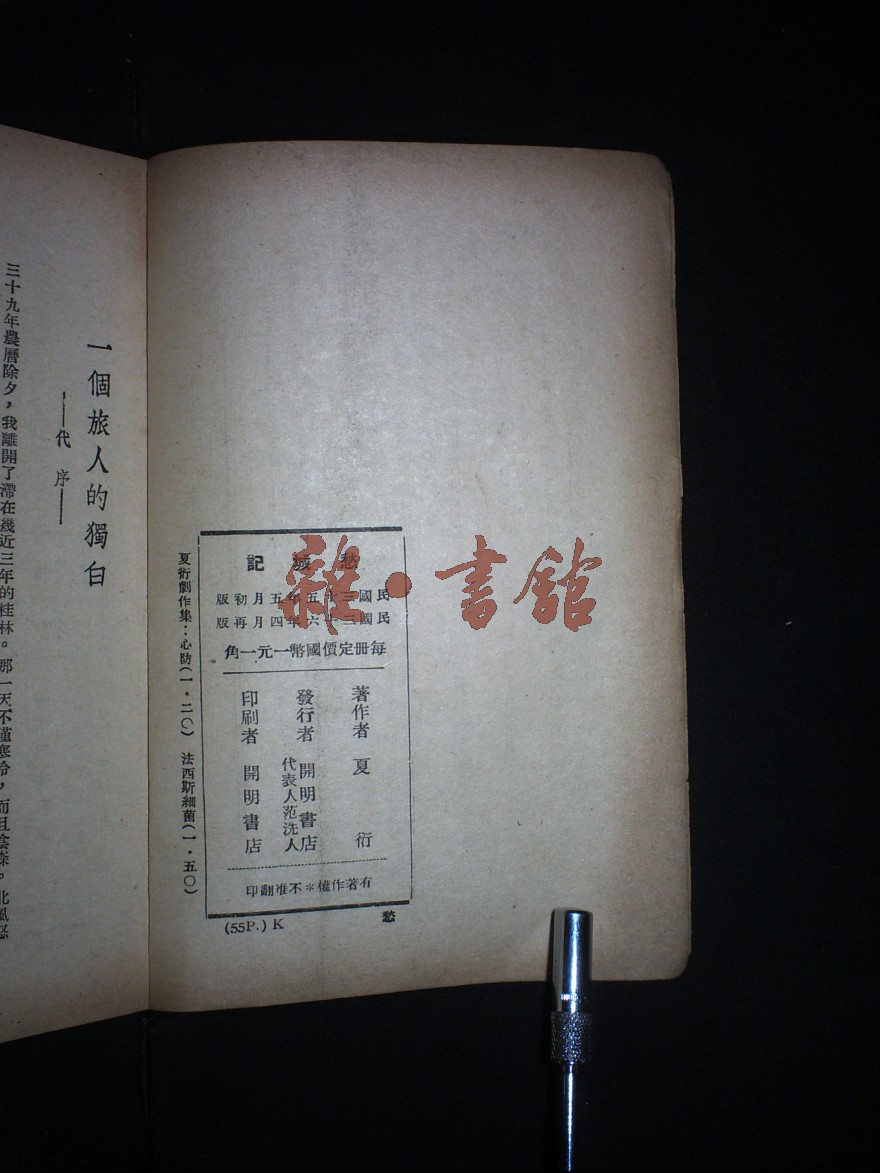 愁城記
民國三十五年五月初版
民國三十六年四月再版
每冊定價國幣一元一角
著作者 夏衍
發行者 開明書店
代表人范洗人
印刷者 開明書店
有著作權＊不准翻印
愁
(55P.) K
夏衍劇作集：心防(一・二〇) 法西斯細菌(一・五〇)
一個旅人的獨白
——代序——
三十九年農曆除夕，我離開了滯在幾近三年的桂林。那一天不僅寒冷，而且陰森。北風怒
雜・書館